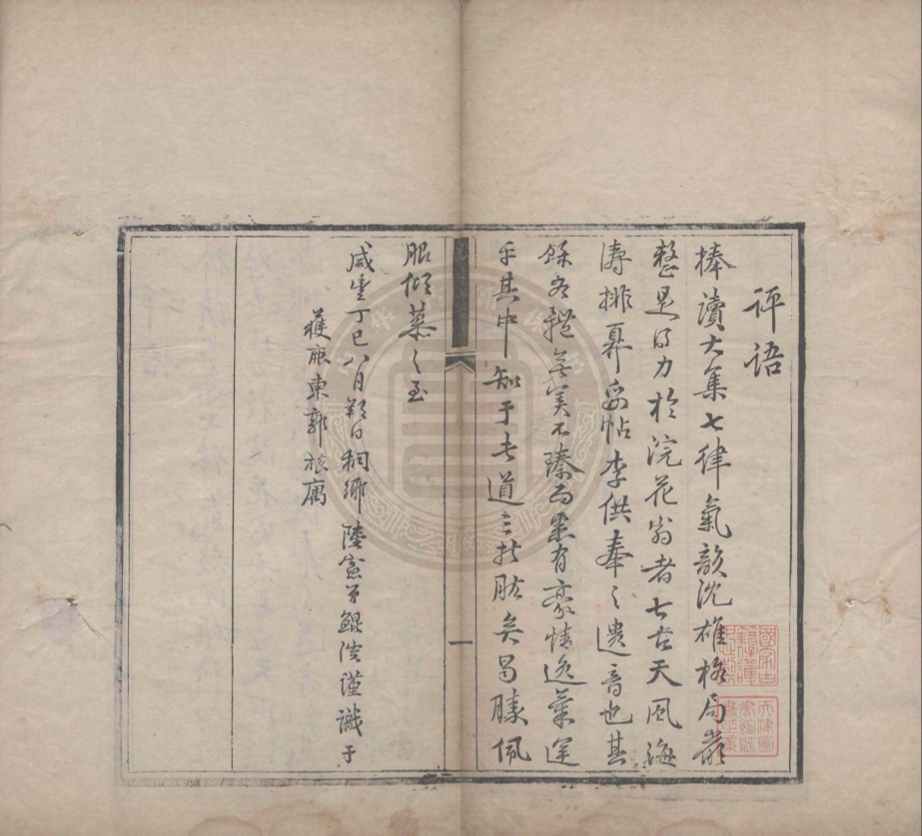 评语
捧讀大集七律氣韻沈雄格局嚴
整是得力於浣花翁者七古天風海
濤排奡妥帖李供奉之遺音也其
餘各體無美不臻而黑有豪情逸氣運
乎其中知于此道三折肱矣曷勝佩
服傾慕之至
咸豐丁巳八月朔日桐鄉陸憲曾鯤淡謹識于
旅䢴東郭旅寓
一